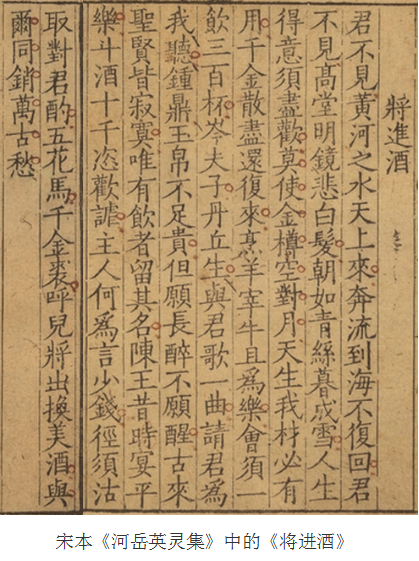 將進酒
君不見黃河之水天上來奔流到海不復回君
不見高堂明鏡悲白髮朝如青絲暮成雪人生
得意須盡歡莫使金樽空對月天生我材必有
用千金散盡還復來烹羊宰牛且爲樂會須一
飲三百杯岑夫子丹丘生與君歌一曲請君爲
我聽鍾鼎玉帛不足貴但願長醉不願醒古來
聖賢皆寂寞唯有飲者留其名陳王昔時宴平
樂斗酒十千恣歡謔主人何爲言少錢徑須沽
取對君酌五花馬千金裘呼兒將出換美酒與
爾同銷萬古愁
宋本《河岳英灵集》中的《将进酒》